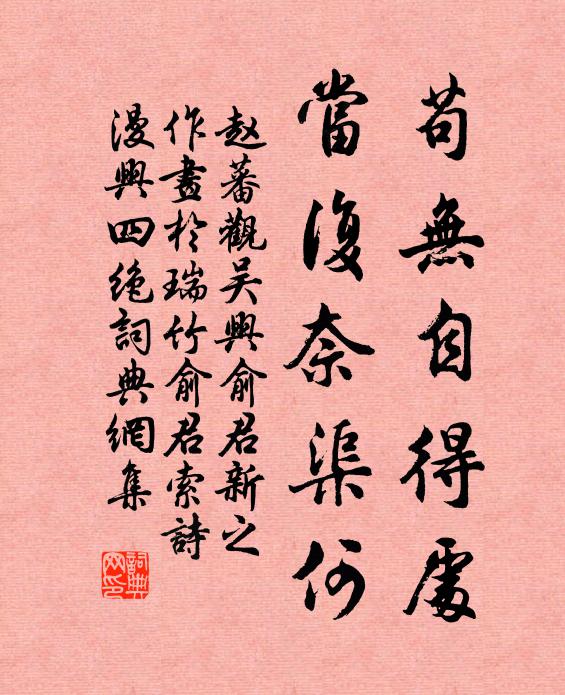 苟無自得處
當復奈渠何
赵蕃觀吴興俞君新之
作畫於瑞竹俞君索詩
漫興四绝詞典網集
詞典网印